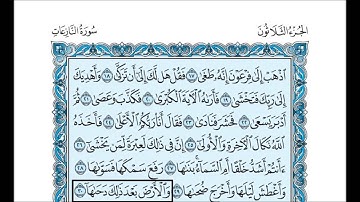 الجزء الثلاثون
سورة النازعات
اذْهَبْ إِلَىٰ فِرْعَوْنَ إِنَّهُ طَغَىٰ ١٧ فَقُلْ هَل لَّكَ إِلَىٰ أَن تَزَكَّىٰ ١٨ وَأَهْدِيَكَ
إِلَىٰ رَبِّكَ فَتَخْشَىٰ ١٩ فَأَرَاهُ الْآيَةَ الْكُبْرَىٰ ٢٠ فَكَذَّبَ وَعَصَىٰ ٢١ ثُمَّ
أَدْبَرَ يَسْعَىٰ ٢٢ فَحَشَرَ فَنَادَىٰ ٢٣ فَقَالَ أَنَا رَبُّكُمُ الْأَعْلَىٰ ٢٤ فَأَخَذَهُ
اللَّهُ نَكَالَ الْآخِرَةِ وَالْأُولَىٰ ٢٥ إِنَّ فِي ذَٰلِكَ لَعِبْرَةً لِّمَن يَخْشَىٰ ٢٦
ءَأَنتُمْ أَشَدُّ خَلْقًا أَمِ السَّمَاءُ ۚ بَنَاهَا ٢٧ رَفَعَ سَمْكَهَا فَسَوَّاهَا ٢٨
وَأَغْطَشَ لَيْلَهَا وَأَخْرَجَ ضُحَاهَا ٢٩ وَالْأَرْضَ بَعْدَ ذَٰلِكَ دَحَاهَا ٣٠